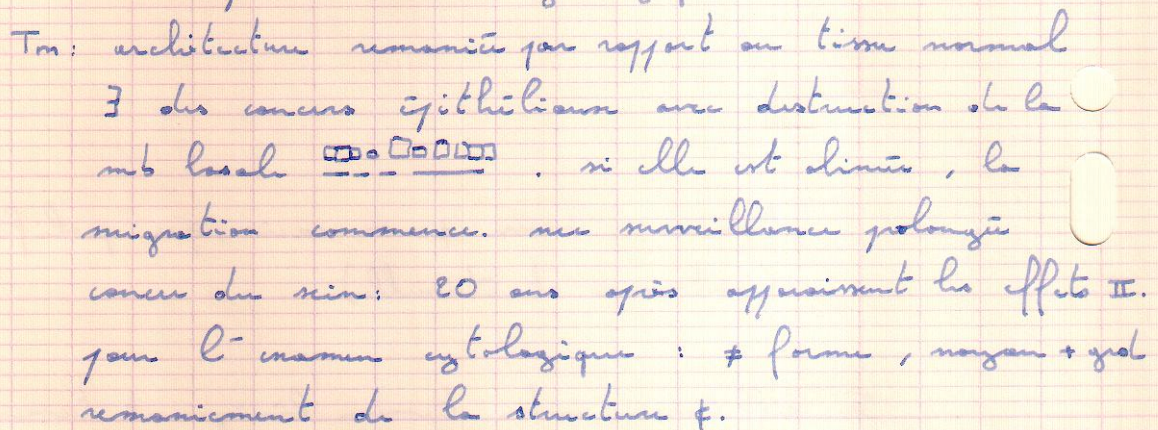 Tm: architecture remaniée par rapport au tissu normal
∃ des cancers épithéliaux avec destruction de la
mb basale . si elle est abimée, la
migration commence. nec surveillance polongée
cancer du sein: 20 ans après apparaissent les effets II.
pour l- examen cytologique : ≠ forme, noyau + grd
remaniement de la structure ¢.